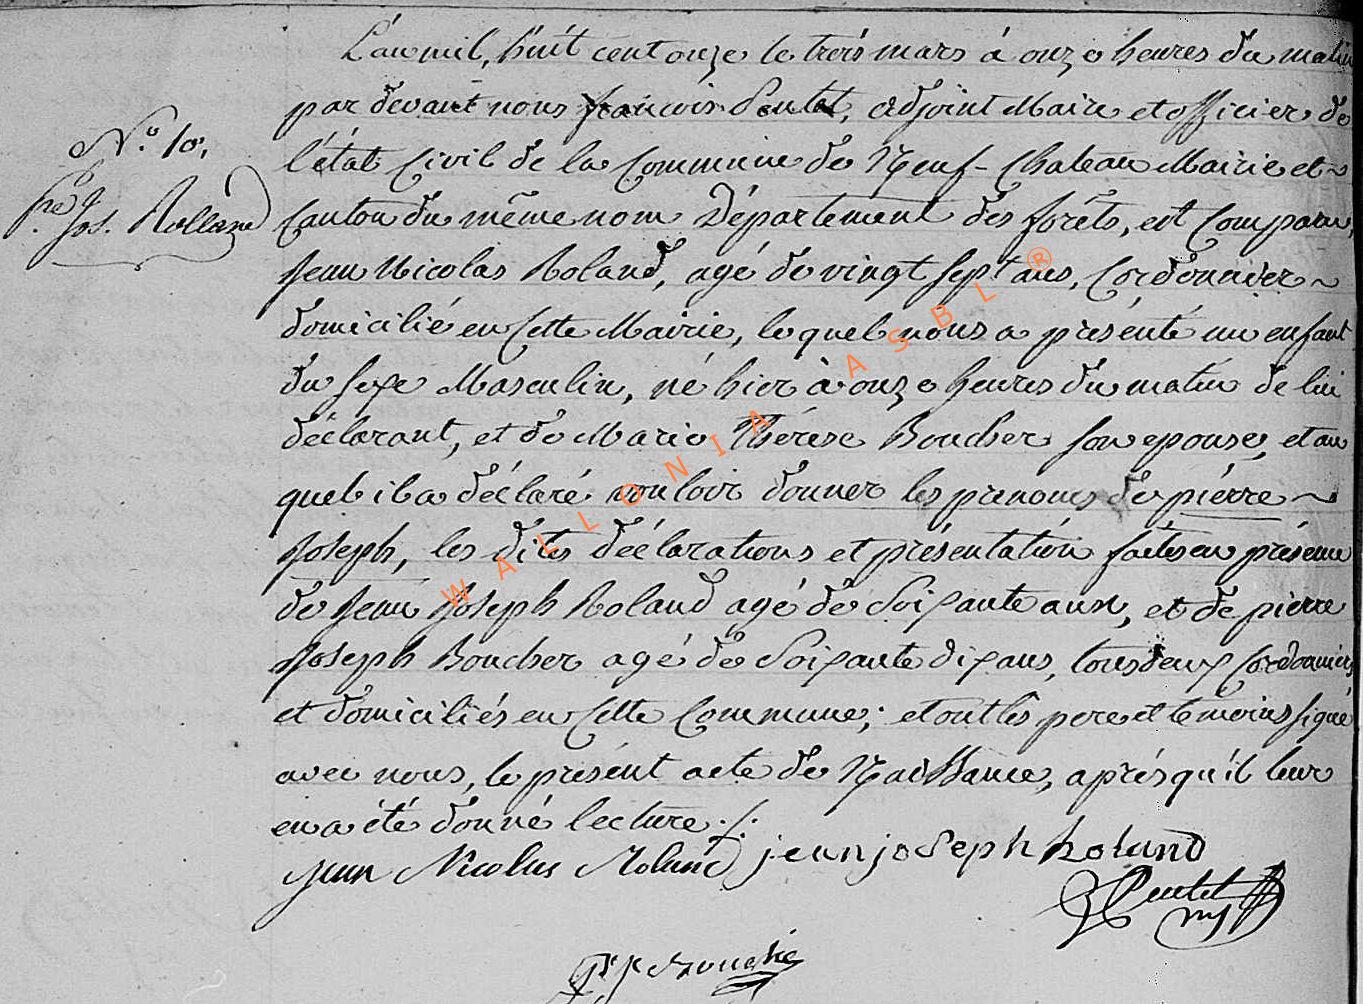 L'an mil, huit cent onze le trois mars à onze heures du matin
par devant nous françois Pentet, adjoint Maire et officier de
l'état Civil de la Commune de Neuf-Chateau Mairie et
Canton du même nom Département des forêts, est Comparu,
Jean Nicolas Roland, agé de vingt sept ans, Cordonnier
domicilié en Cette Mairie, le quel nous a présenté un enfant
du sexe Masculin, né hier à onze heures du matin de lui
déclarant, et de Marie Thérèse Boucher son epouse, et au
quel il a déclaré vouloir donner les prenoms de pierre
Joseph, les dites déclarations et présentation faites en présence
de Jean Joseph Roland agé de Soixante ans, et de pierre
Joseph Boucher agé de Soixante dix ans, tous deux Cordonniers
et domiciliés en Cette Commune; et ont les pere et témoins signé
avec nous, le présent acte de Naissance, après qu'il leur
en a été donné lecture ./.
N.º 10,
pre Jos. Rolland
Jean Nicolas Roland jean joseph Roland
Pentet
WALLONIA ASBL ®